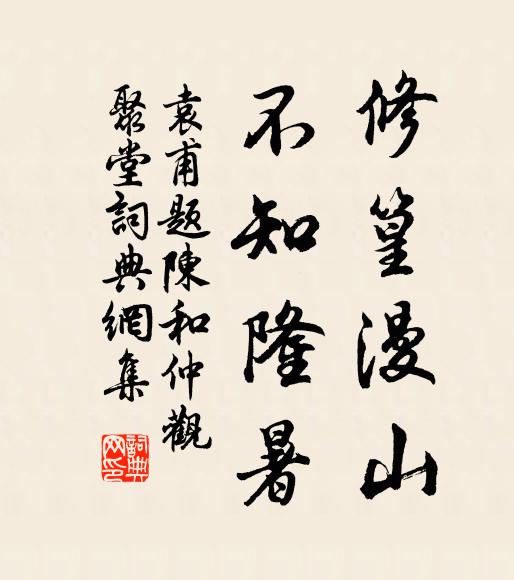 修篁漫山
不知隆暑
袁甫題陳和仲觀
聚堂詞典網集
詞典网印